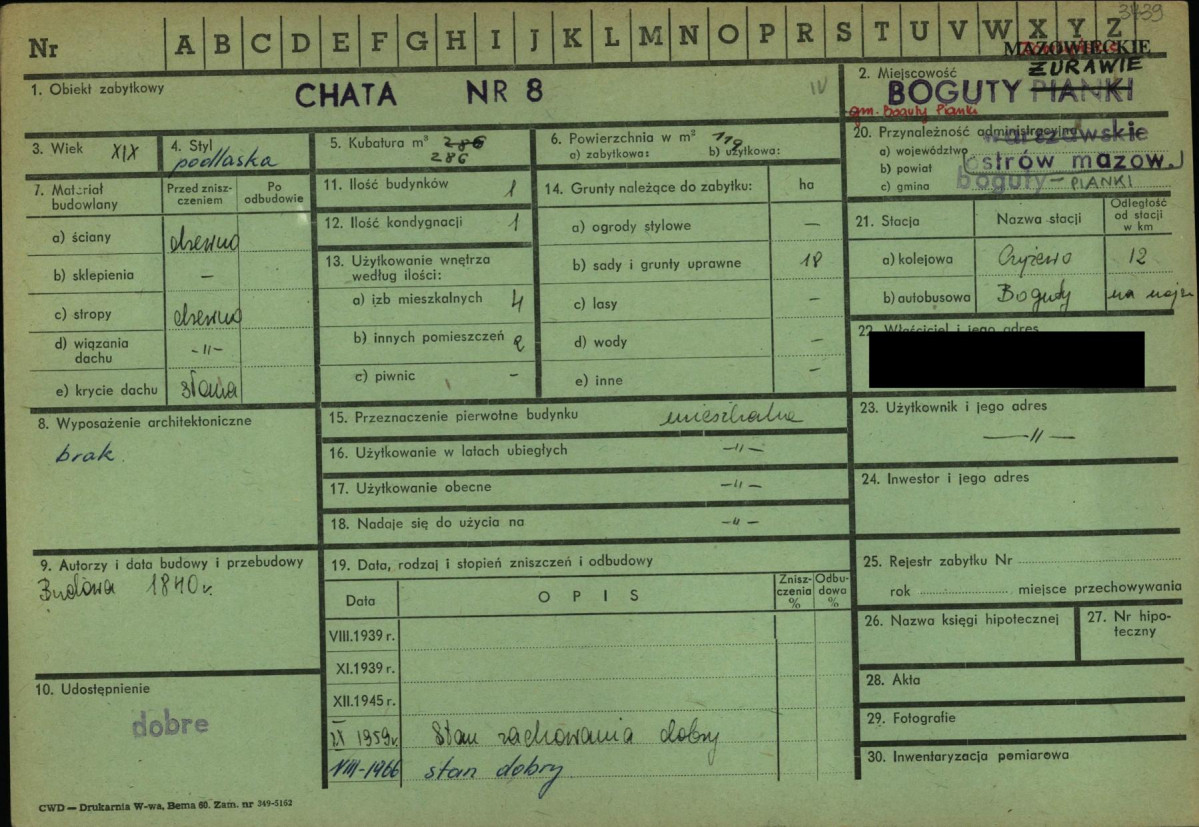 3439
Nr A B C D E F G H I J K L M N O P R S T U V W X Y Z
MAZOWIECKIE
1. Obiekt zabytkowy
CHATA NR 8
IV
2. Miejscowość
ŻURAWIE
BOGUTY PIANKI
gm. Boguty Pianki
3. Wiek XIX
4. Styl podlaska
5. Kubatura m³ 286
286
6. Powierzchnia w m² 119
a) zabytkowa: b) użytkowa:
20. Przynależność administracyjna
a) województwo warszawskie
b) powiat ostrów mazow.
c) gmina boguty - PIANKI
7. Materiał budowlany
Przed zniszczeniem
Po odbudowie
a) ściany drewno
b) sklepienia —
c) stropy drewno
d) wiązania dachu -"-
e) krycie dachu słoma
11. Ilość budynków 1
12. Ilość kondygnacji 1
13. Użytkowanie wnętrza według ilości:
a) izb mieszkalnych 4
b) innych pomieszczeń 2
c) piwnic -
14. Grunty należące do zabytku: ha
a) ogrody stylowe —
b) sady i grunty uprawne 18
c) lasy -
d) wody -
e) inne -
21. Stacja
Nazwa stacji
Odległość od stacji w km
a) kolejowa Czyżewo 12
b) autobusowa Boguty na miejs
22. Właściciel i jego adres
8. Wyposażenie architektoniczne
brak.
15. Przeznaczenie pierwotne budynku mieszkalne
16. Użytkowanie w latach ubiegłych -"-
17. Użytkowanie obecne -"-
18. Nadaje się do użycia na -"-
23. Użytkownik i jego adres
—"—
24. Inwestor i jego adres
9. Autorzy i data budowy i przebudowy
Budowa 1840 r.
19. Data, rodzaj i stopień zniszczeń i odbudowy
Data
OPIS
Zniszczenia %
Odbudowa %
VIII.1939 r.
XI.1939 r.
XII.1945 r.
IX 1959 r. Stan zachowania dobry
VIII-1966 stan dobry
25. Rejestr zabytku Nr
rok miejsce przechowywania
26. Nazwa księgi hipotecznej
27. Nr hipoteczny
10. Udostępnienie
dobre
28. Akta
29. Fotografie
30. Inwentaryzacja pomiarowa
CWD — Drukarnia W-wa, Bema 60. Zam. nr 349-5152